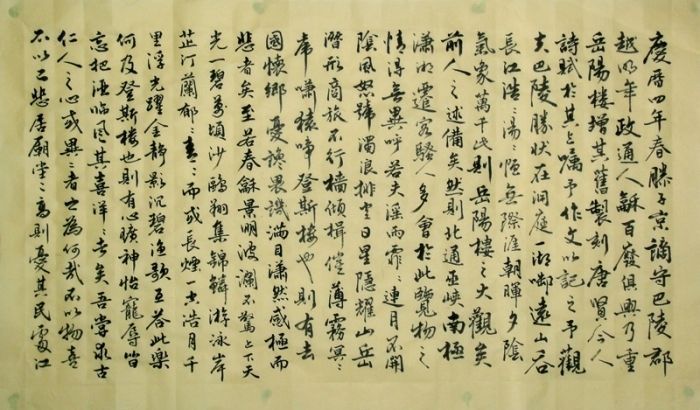 慶曆四年春滕子京謫守巴陵郡
越明年政通人龢百廢俱興乃重
岳陽樓增其舊製刻唐賢今人
詩賦於其上囑予作文以記之予觀
夫巴陵勝狀在洞庭一湖啣遠山吞
長江浩浩湯湯橫無際涯朝暉夕陰
氣象萬千此則岳陽樓之大觀矣
前人之述備矣然則北通巫峽南極
瀟湘遷客騷人多會於此覽物之
情得無異呼若夫淫雨霏霏連月不開
陰風怒號濁浪排空日星隱耀山岳
潛形商旅不行檣傾楫摧薄霧冥冥
虎嘯猿啼登斯樓也則有去
國懷鄉憂讒畏譏滿目蕭然感極而
悲者矣至若春龢景明波瀾不驚上下天
光一碧萬頃沙鷗翔集錦鱗游泳岸
芷汀蘭郁郁青青而或長煙一空浩月千
里浮光躍金靜影沉碧漁歌互答此樂
何及登斯樓也則有心曠神怡寵辱皆
忘把酒臨風其喜洋洋者矣吾嘗求古
仁人之心或異二者之為何哉不以物喜
不以己悲居廟堂之高則憂其民處江